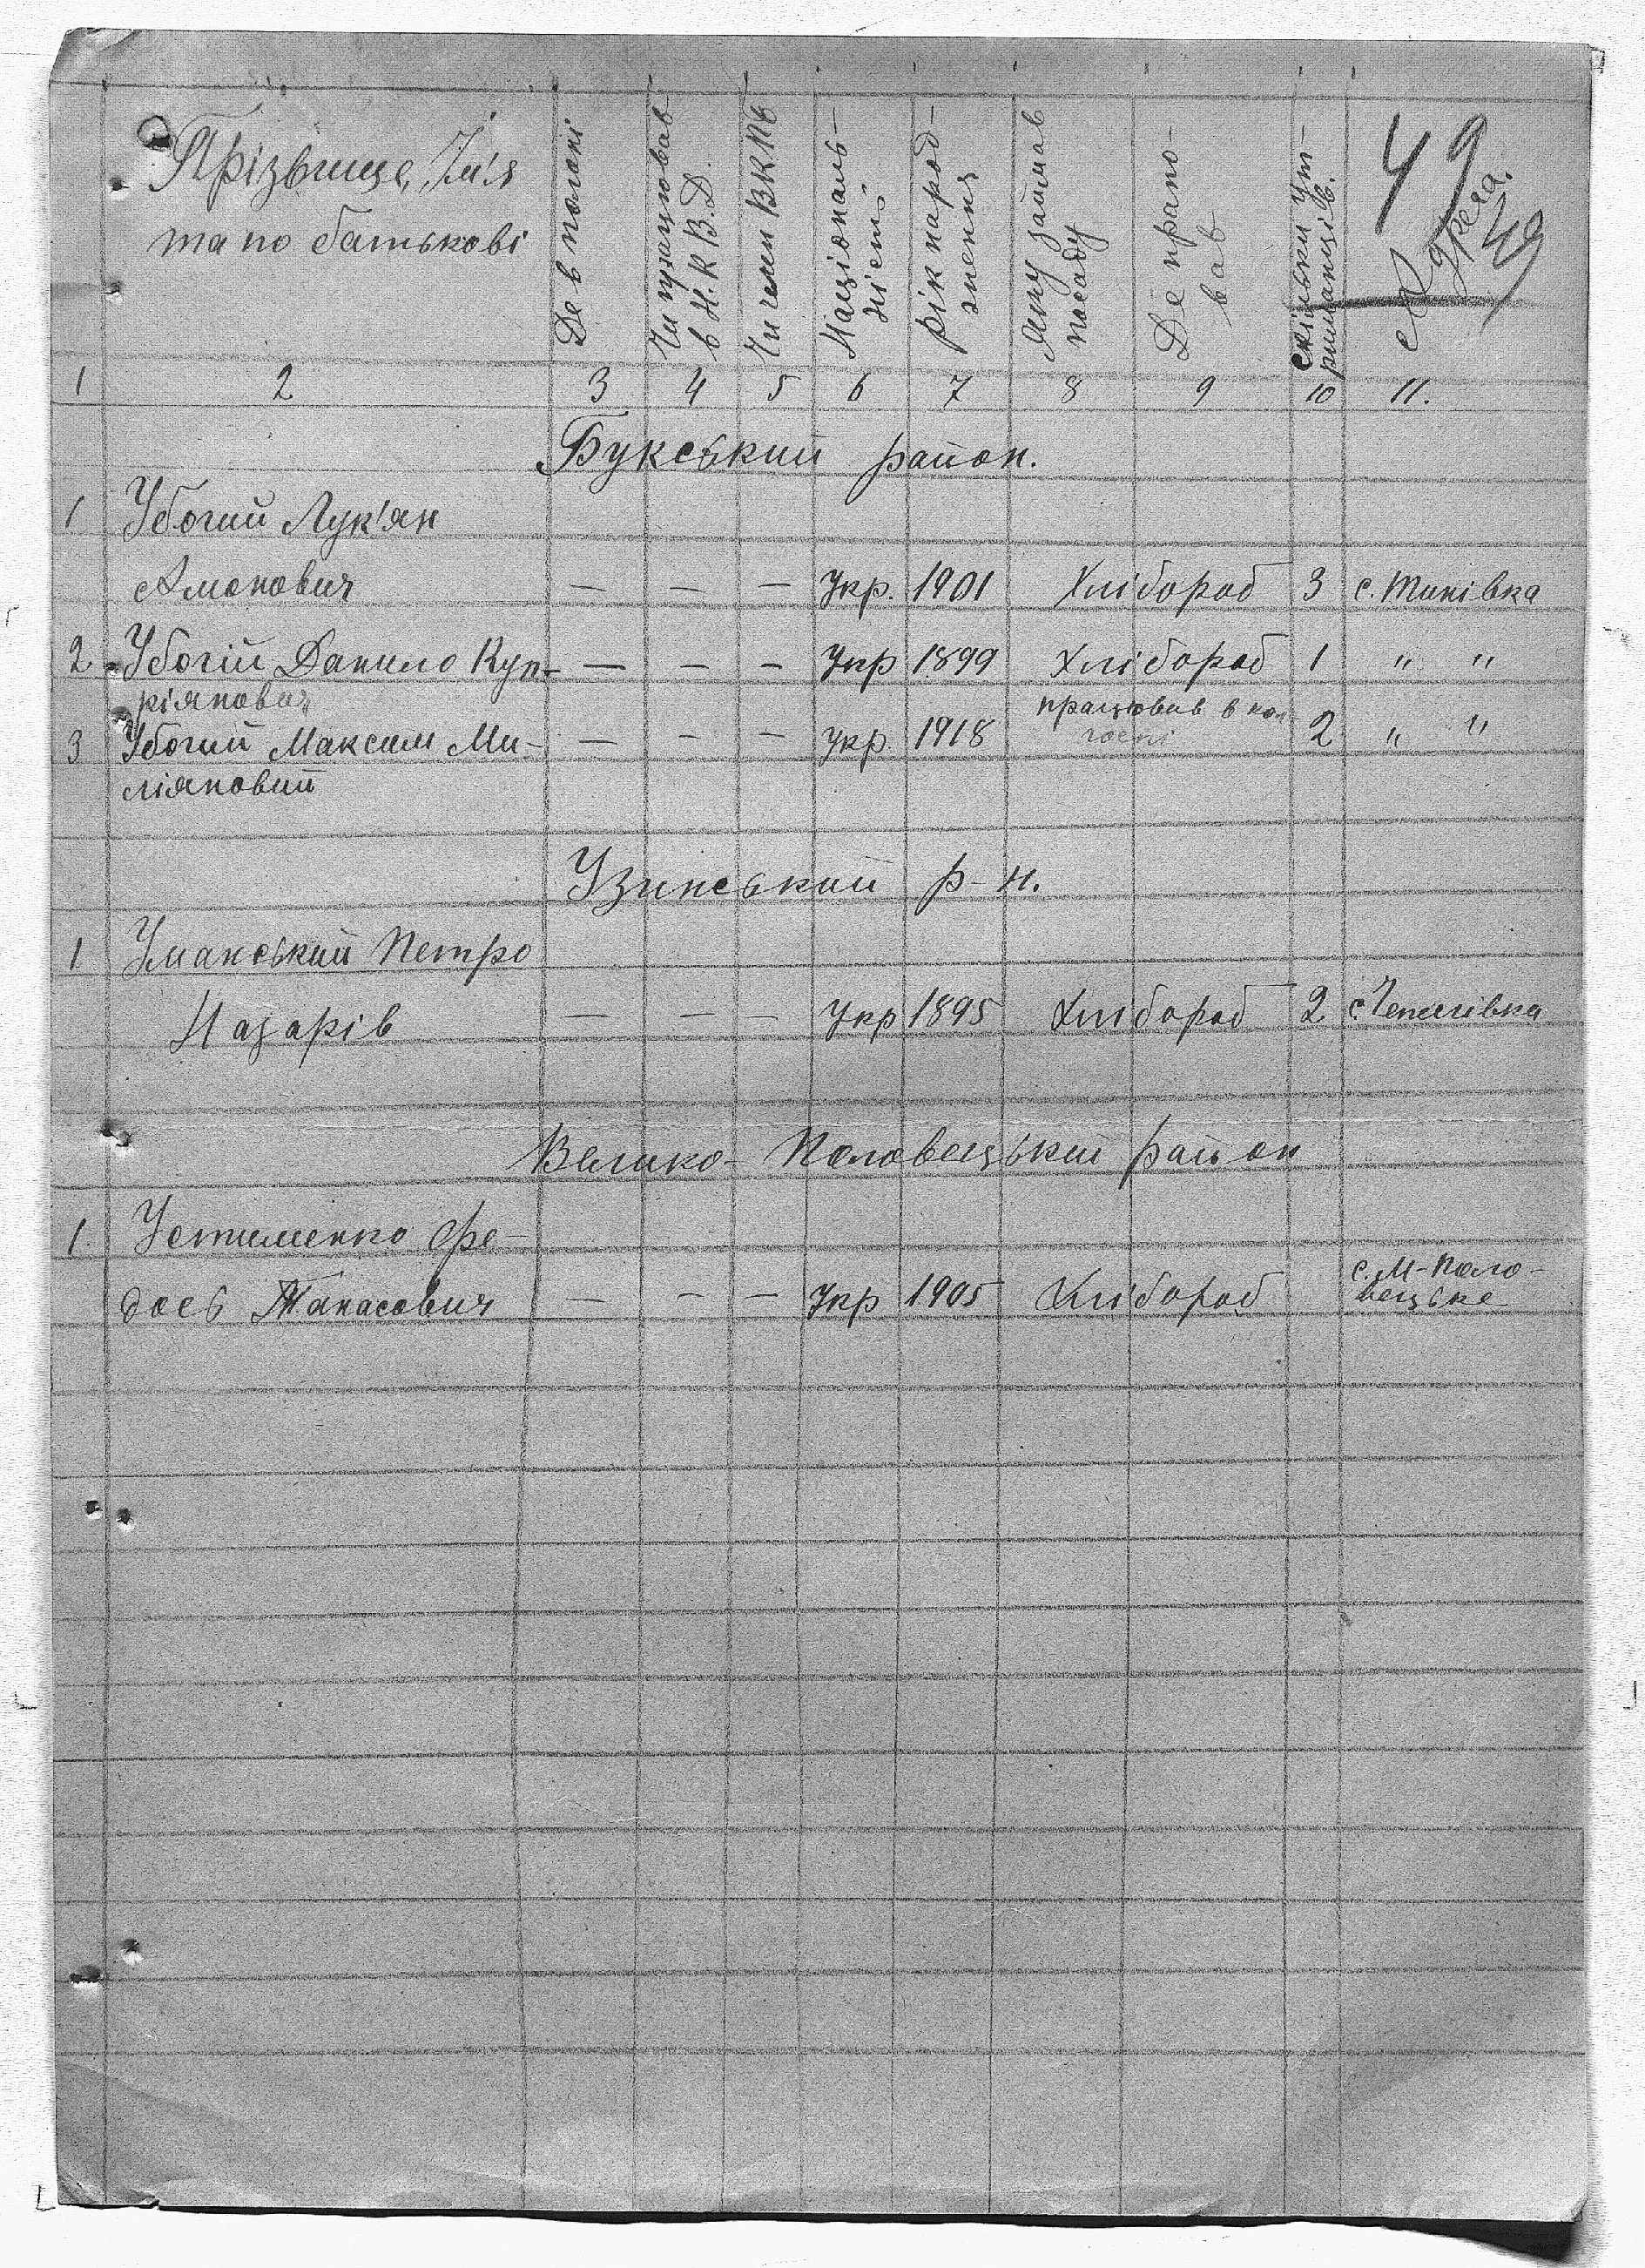 49
49
Прізвище, Ім'я
та по батькові
Де в полоні
Чи працював
в Н.К.В.Д.
Чи член ВКПб
Національ-
ність
рік народ-
ження
Яку займав
посаду
Де прапо-
вав
скільки ут-
риманців.
Адреса.
1 2 3 4 5 6 7 8 9 10 11.
Букський район.
1 Убогий Лук'ян
Амонович — — — Укр. 1901 Хлібороб 3 с. Тинівка
2 Убогій Данило Куп- — — — Укр 1899 Хлібороб 1 " "
ріянович
працював в кол-
3 Убогий Максим Ми- — — — укр. 1918 госпі 2 " "
ліяновий
Узинський р-н.
1 Уманський Петро
Назарів — — — Укр 1895 Хлібороб 2
Велико-Половецький район
1. Устименко Фе-
дось Танасович — — — Укр 1905 Хлібороб с. М-Поло-
вецьке